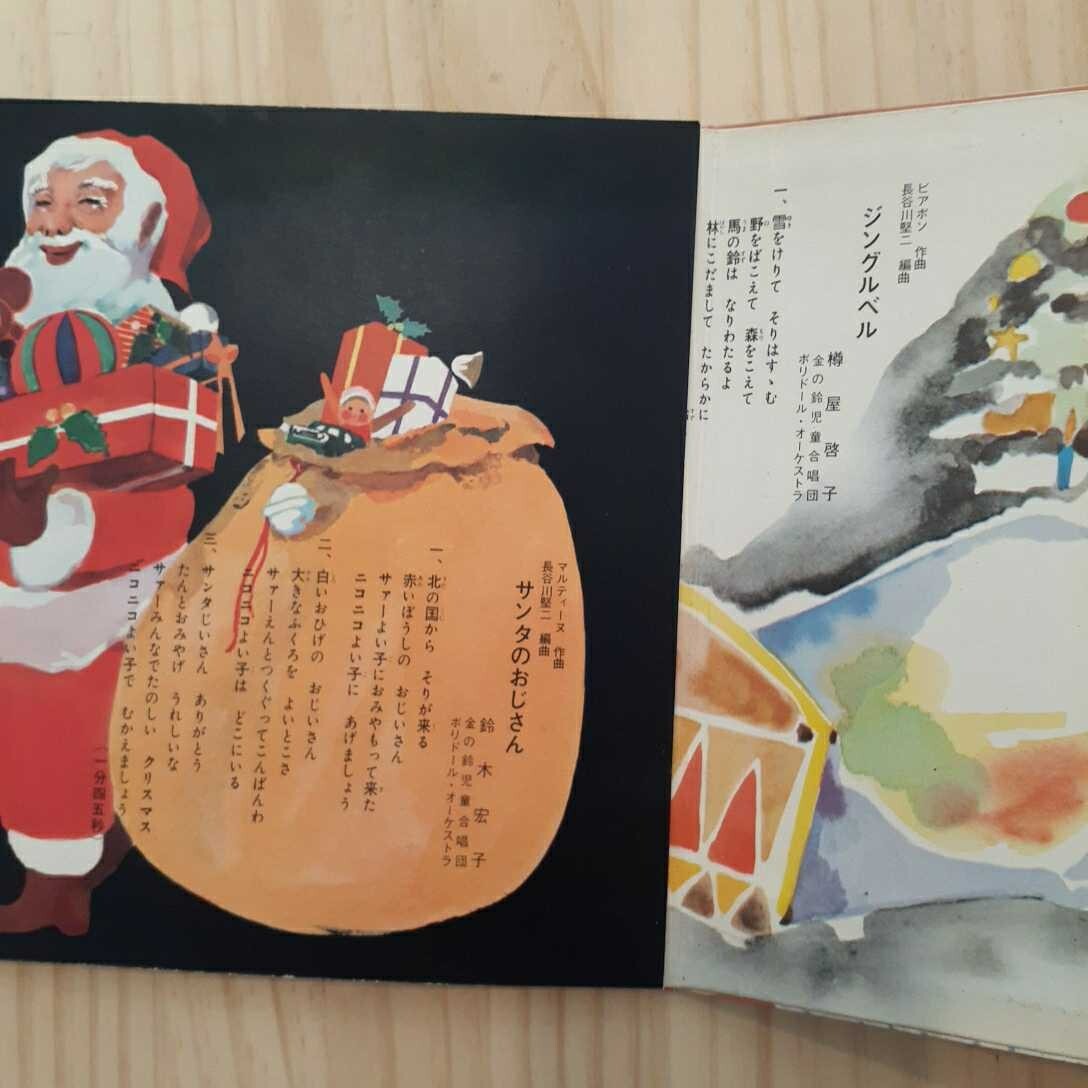 ピアポン 作曲
長谷川堅二 編曲
ジングルベル
樽屋啓子
金の鈴児童合唱団
ポリドール・オーケストラ
一、雪をけりて そりはすゝむ
野をばこえて 森をこえて
馬の鈴は なりわたるよ
林にこだまして たからかに
マルティーヌ 作曲
長谷川堅二 編曲
サンタのおじさん
鈴木宏子
金の鈴児童合唱団
ポリドール・オーケストラ
一、北の国から そりが来る
赤いぼうしの おじいさん
サァーよい子におみやもって来た
ニコニコよい子に あげましょう
二、白いおひげの おじいさん
大きなふくろを よいとこさ
サァーえんとつくぐってこんばんわ
ニコニコよい子は どこにいる
三、サンタじいさん ありがとう
たんとおみやげ うれしいな
サァーみんなでたのしい クリスマス
ニコニコよい子で むかえましょう